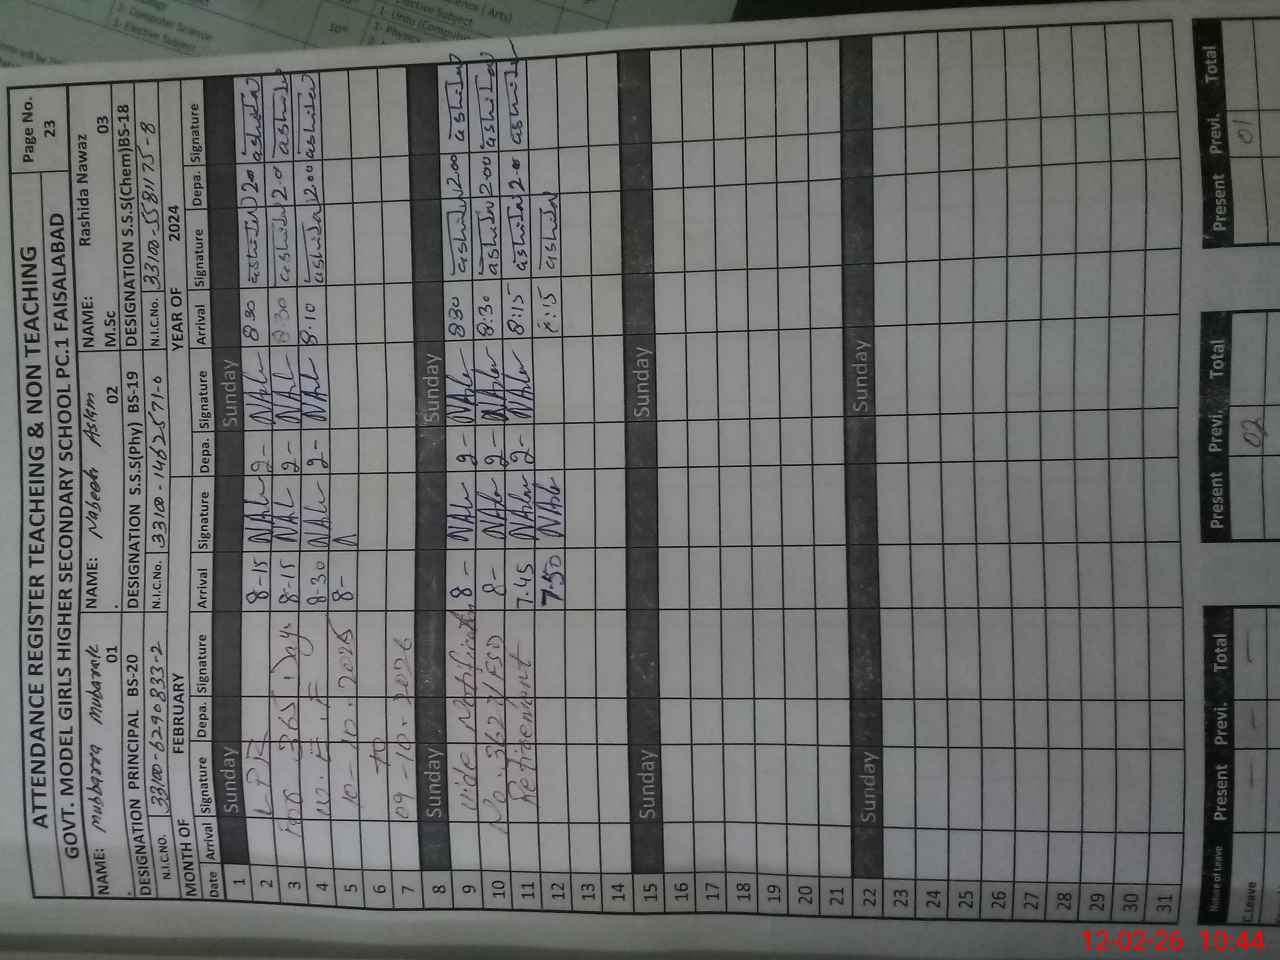 Science ( Arts)
Elective Subject
1. Urdu (Compu
1- Physics
3- Computer Science
3- Elective Subject
10th
ATTENDANCE REGISTER TEACHEING & NON TEACHING
Page No.
23
GOVT. MODEL GIRLS HIGHER SECONDARY SCHOOL PC.1 FAISALABAD
NAME: Mubbarra Mubarak 01
NAME: Nabeeh Aslam 02
NAME: Rashida Nawaz M.Sc 03
DESIGNATION PRINCIPAL BS-20
DESIGNATION S.S.S(Phy) BS-19
DESIGNATION S.S.S(Chem)BS-18
N.I.C.No. 33100-6290833-2
N.I.C.No. 33100-1462571-0
N.I.C.No. 33100-5581175-8
MONTH OF FEBRUARY YEAR OF 2024
Date Arrival Signature Depa. Signature Arrival Signature Depa. Signature Arrival Signature Depa. Signature
1 Sunday Sunday
2 LPR 8-15 2- 8 30 2.00
3 For 365 Days 8-15 2- 8 30 2.00
4 w.e.f 8-30 2- 8.10 2.00
5 10-10.2025 8-
6 to
7 09-10-2026
8 Sunday Sunday
9 Vide Notification 8- 2- 830 2.00
10 No.3627/FSD 8- 2- 8:30 2.00
11 Retirement 7.45 2- 8:15 2.00
12 7.50 8:15
13
14
15 Sunday Sunday
16
17
18
19
20
21
22 Sunday Sunday
23
24
25
26
27
28
29
30
31
Nature of Leave Present Previ. Total Present Previ. Total Present Previ. Total
C.Leave - - - 02 01
12-02-26 10:44